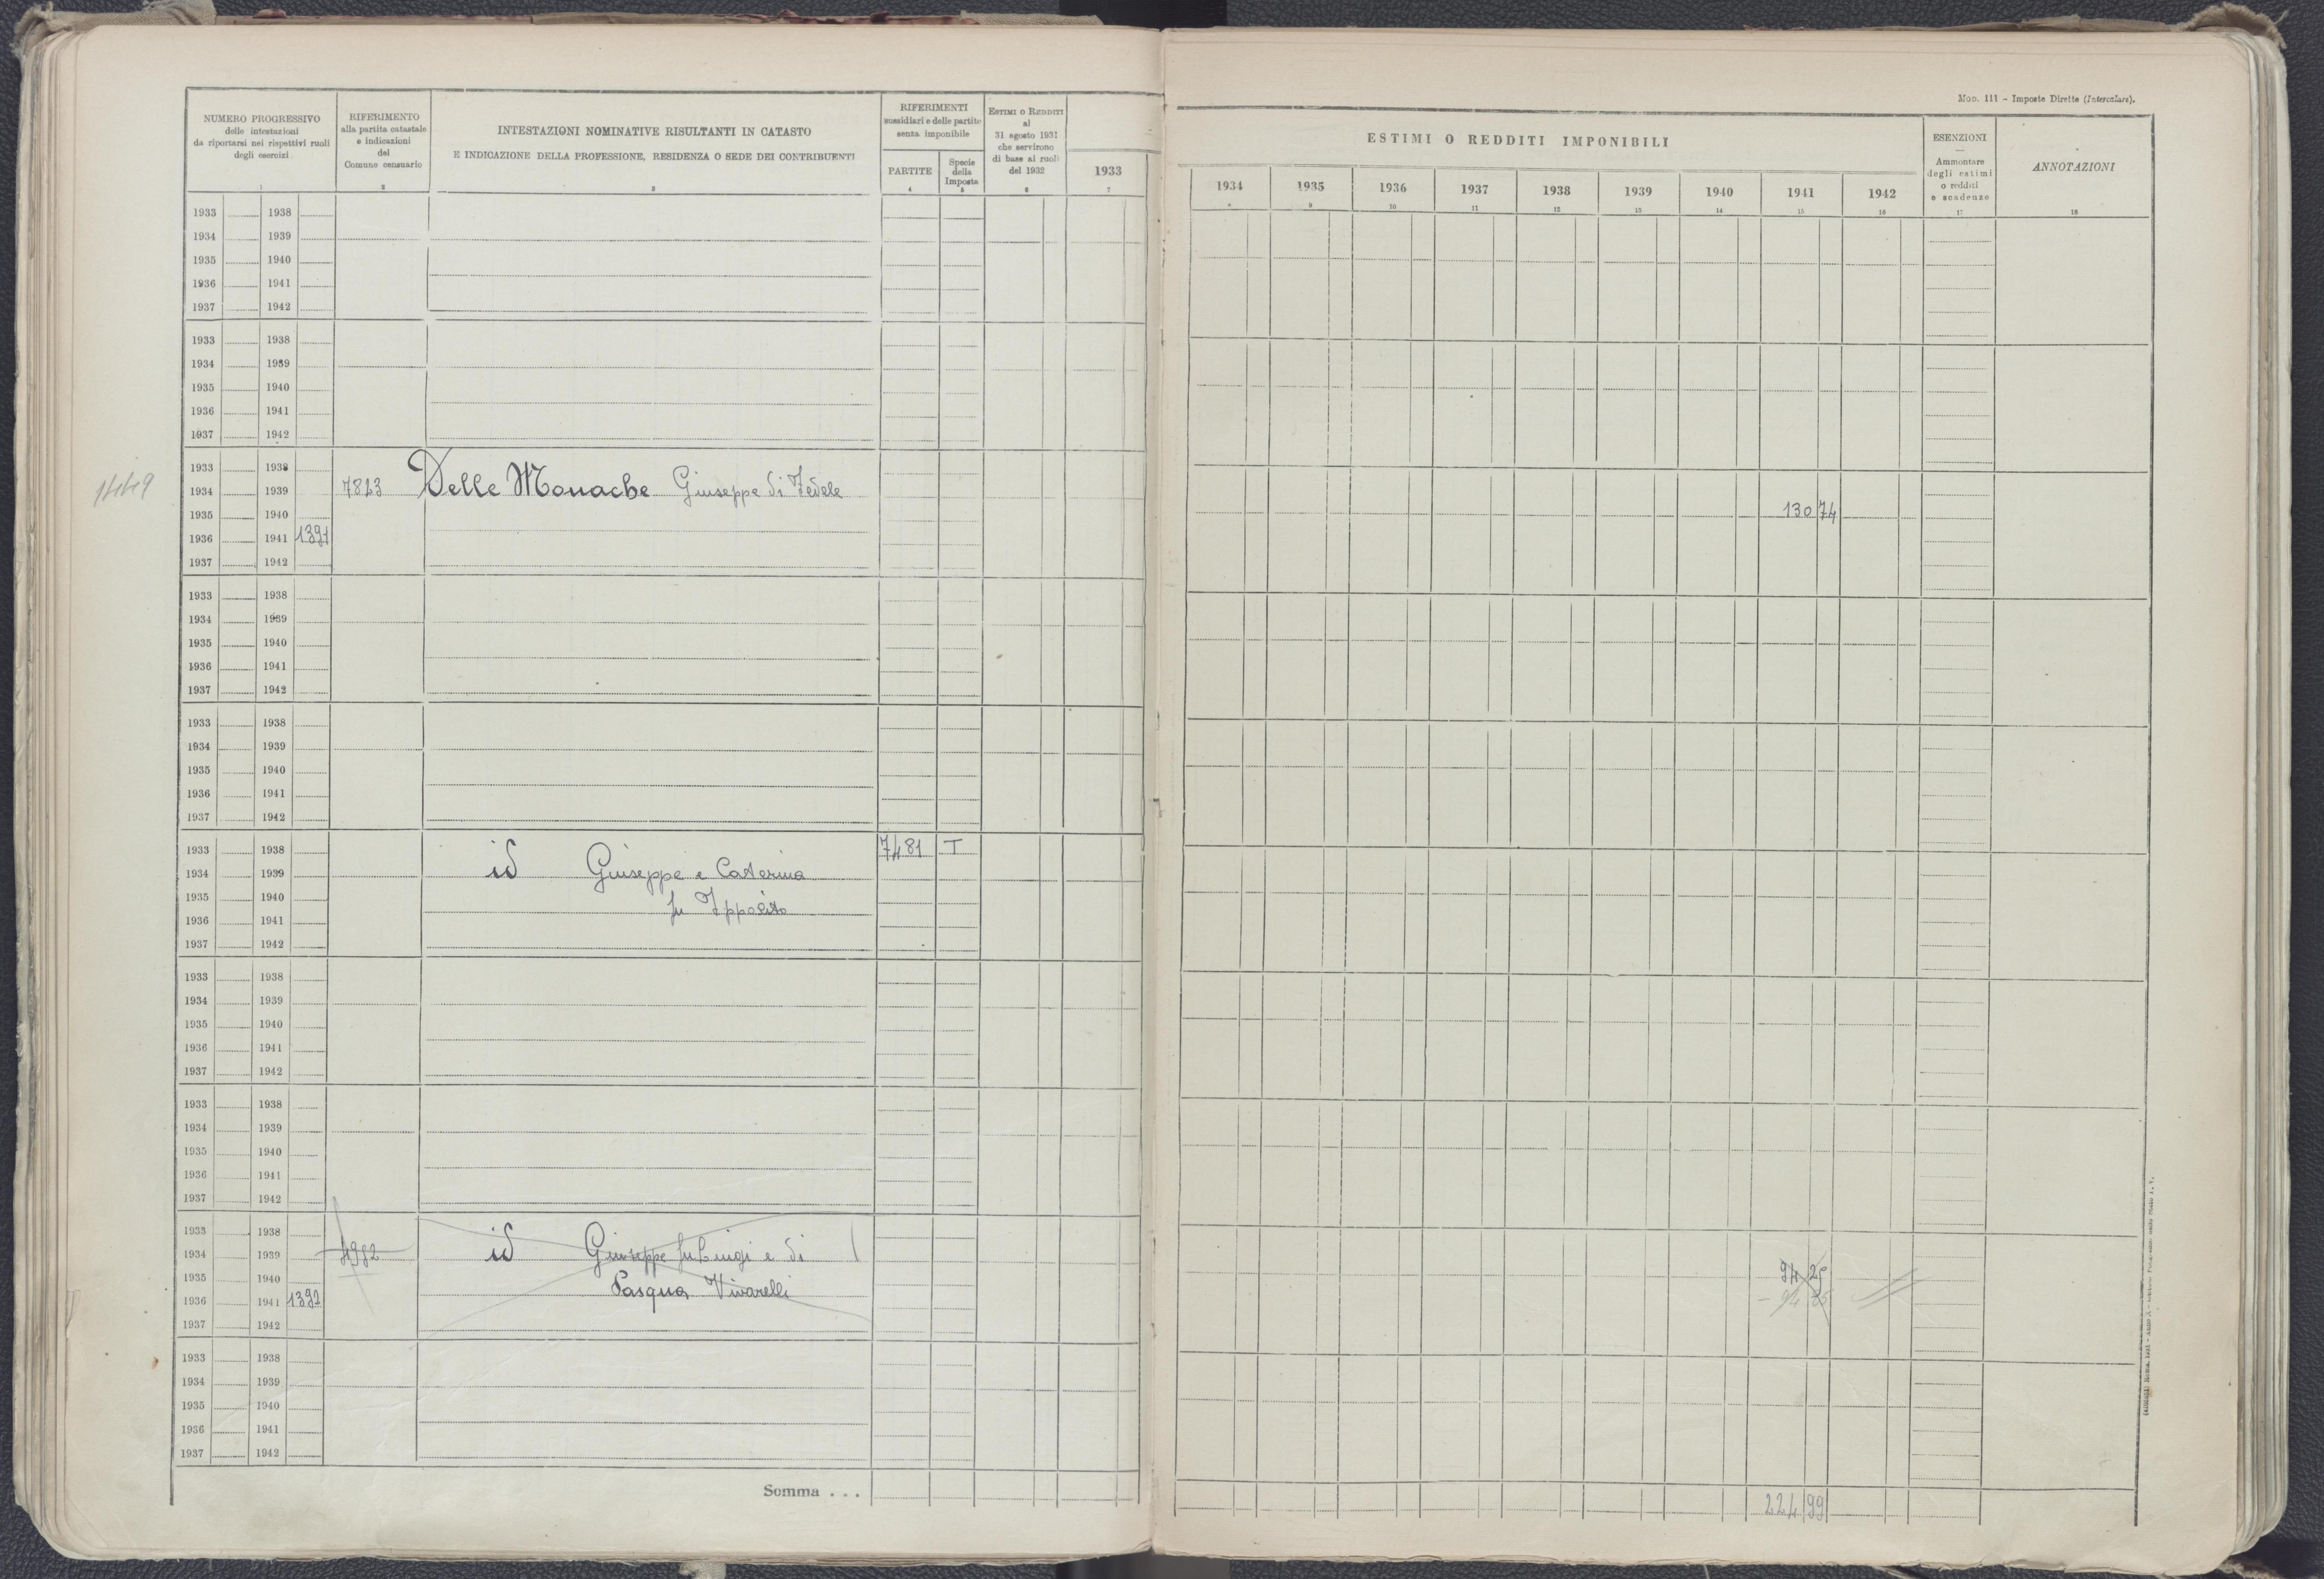 Mod. 111 - Imposte Dirette (Intercalare).
NUMERO PROGRESSIVO
delle intestazioni
da riportarsi nei rispettivi ruoli
degli esercizi
1
RIFERIMENTO
alla partita catastale
e indicazioni
del
Comune censuario
2
INTESTAZIONI NOMINATIVE RISULTANTI IN CATASTO
E INDICAZIONE DELLA PROFESSIONE, RESIDENZA O SEDE DEI CONTRIBUENTI
3
RIFERIMENTI
sussidiari e delle partite
senza imponibile
PARTITE
4
Specie
della
Imposta
5
ESTIMI O REDDITI
al
31 agosto 1931
che servirono
di base ai ruoli
del 1932
6
1933
7
ESTIMI O REDDITI IMPONIBILI
1934 1935 1936 1937 1938 1939 1940 1941 1942
8 9 10 11 12 13 14 15 16
ESENZIONI
Ammontare
degli estimi
o redditi
e scadenze
17
ANNOTAZIONI
18
1933 1938
1934 1939
1935 1940
1936 1941
1937 1942
1933 1938
1934 1939
1935 1940
1936 1941
1937 1942
1933 1938
1449 1934 1939 7823 Delle Monache Giuseppe di Fedele
1935 1940 130 74
1936 1941 1391
1937 1942
1933 1938
1934 1939
1935 1940
1936 1941
1937 1942
1933 1938
1934 1939
1935 1940
1936 1941
1937 1942
1933 1938 7481 T
1934 1939 id Giuseppe e Caterina
1935 1940 fu Ippolito
1936 1941
1937 1942
1933 1938
1934 1939
1935 1940
1936 1941
1937 1942
1933 1938
1934 1939
1935 1940
1936 1941
1937 1942
1933 1938
1934 1939 4992 id Giuseppe fu Luigi e di
1935 1940 Pasqua Vivarelli 94 25
1936 1941 1392 - 94 25
1937 1942
1933 1938
1934 1939
1935 1940
1936 1941
1937 1942
Somma . . . 224 99